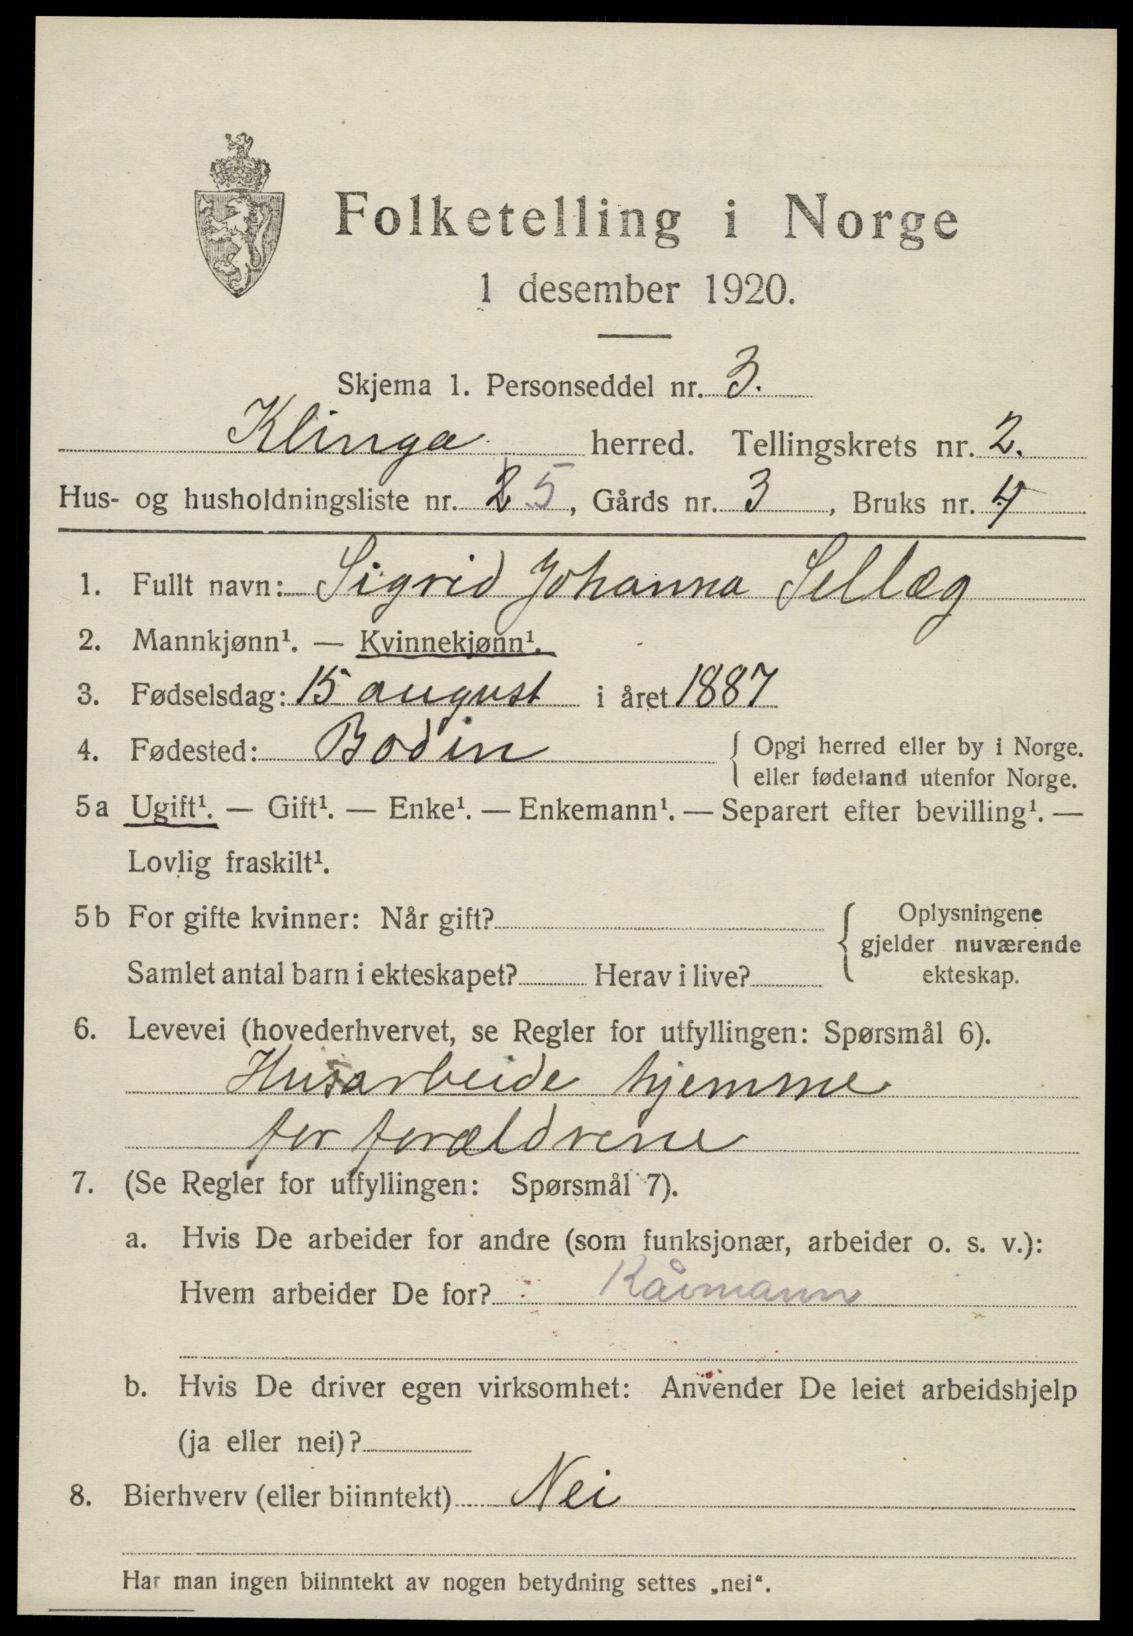 Folketelling i Norge
1 desember 1920.
Skjema 1. Personseddel nr. 3.
Klinga herred. Tellingskrets nr. 2.
Hus- og husholdningsliste nr. 5, Gårds nr. 3, Bruks nr. 4
1. Fullt navn: Sigrid Johanna Sellæg
2. Mannkjønn¹. — Kvinnekjønn¹.
3. Fødselsdag: 15 august i året 1887
4. Fødested: Bodin { Opgi herred eller by i Norge.
eller fødeland utenfor Norge.
5a Ugift¹. — Gift¹. — Enke¹. — Enkemann¹. — Separert efter bevilling¹. —
Lovlig fraskilt¹.
5b For gifte kvinner: Når gift? { Oplysningene
gjelder nuværende
Samlet antal barn i ekteskapet? Herav i live? ekteskap.
6. Levevei (hovederhvervet, se Regler for utfyllingen: Spørsmål 6).
Husarbeide hjemme
for forældrene
7. (Se Regler for utfyllingen: Spørsmål 7).
a. Hvis De arbeider for andre (som funksjonær, arbeider o. s. v.):
Hvem arbeider De for? Kårmann
b. Hvis De driver egen virksomhet: Anvender De leiet arbeidshjelp
(ja eller nei)?
8. Bierhverv (eller biinntekt) Nei
Har man ingen biinntekt av nogen betydning settes „nei“.